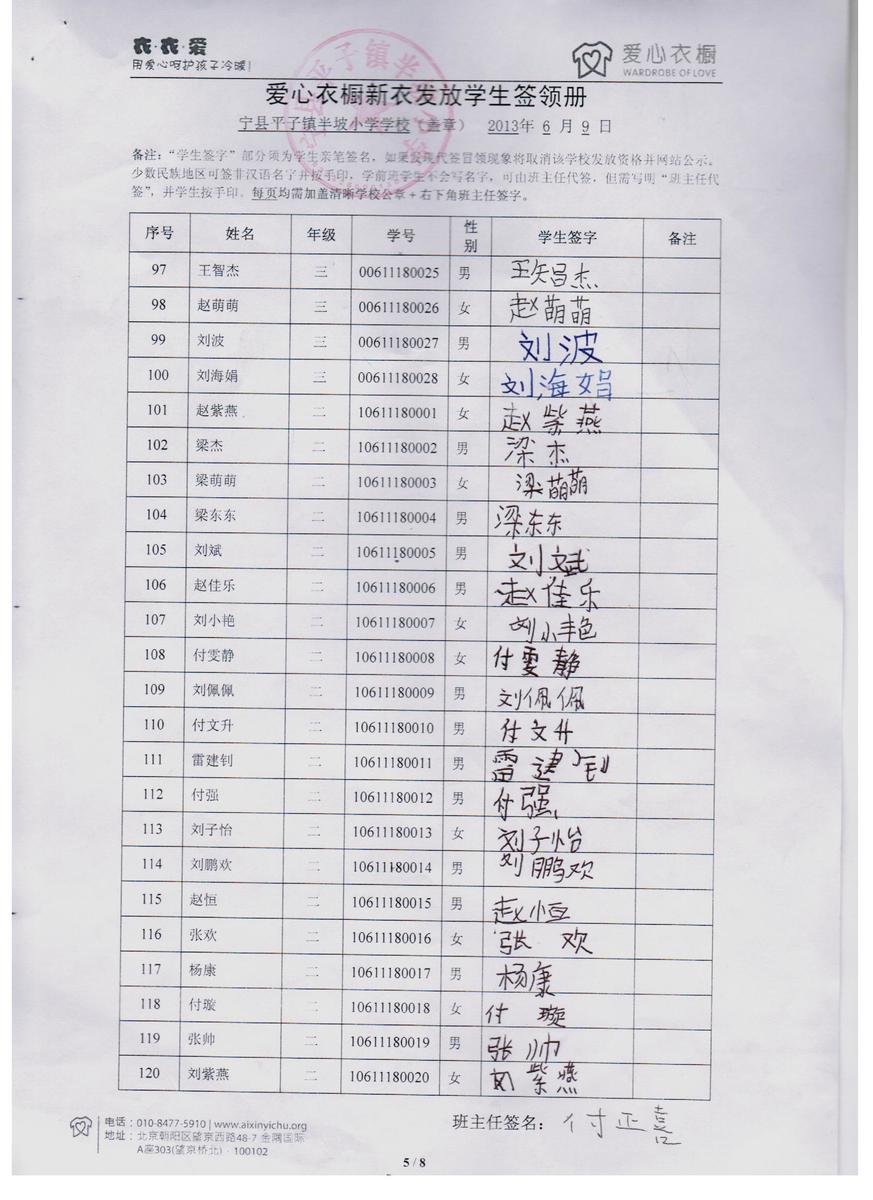 衣·衣·爱
用爱心呵护孩子冷暖!
爱心衣橱
WARDROBE OF LOVE
爱心衣橱新衣发放学生签领册
宁县平子镇半坡小学学校（盖章） 2013年 6 月 9 日
备注：“学生签字”部分须为学生亲笔签名，如果发现代签冒领现象将取消该学校发放资格并网站公示。
少数民族地区可签非汉语名字并按手印，学前班学生不会写名字，可由班主任代签，但需写明“班主任代
签”，并学生按手印。每页均需加盖清晰学校公章+右下角班主任签字。
序号 姓名 年级 学号 性别 学生签字 备注
97 王智杰 三 00611180025 男 王智杰
98 赵萌萌 三 00611180026 女 赵萌萌
99 刘波 三 00611180027 男 刘波
100 刘海娟 三 00611180028 女 刘海娟
101 赵紫燕 二 10611180001 女 赵紫燕
102 梁杰 二 10611180002 男 梁杰
103 梁萌萌 二 10611180003 女 梁萌萌
104 梁东东 二 10611180004 男 梁东东
105 刘斌 二 10611180005 男 刘斌
106 赵佳乐 二 10611180006 男 赵佳乐
107 刘小艳 二 10611180007 女 刘小艳
108 付雯静 二 10611180008 女 付雯静
109 刘佩佩 二 10611180009 男 刘佩佩
110 付文升 二 10611180010 男 付文升
111 雷建钊 二 10611180011 男 雷建钊
112 付强 二 10611180012 男 付强
113 刘子怡 二 10611180013 女 刘子怡
114 刘鹏欢 二 10611180014 男 刘鹏欢
115 赵恒 二 10611180015 男 赵恒
116 张欢 二 10611180016 女 张欢
117 杨康 二 10611180017 男 杨康
118 付璇 二 10611180018 女 付璇
119 张帅 二 10611180019 男 张帅
120 刘紫燕 二 10611180020 女 刘紫燕
电话：010-8477-5910 | www.aixinyichu.org
地址：北京朝阳区望京西路48-7 金隅国际
A座303(望京桥北) · 100102
班主任签名：付正喜
5 / 8